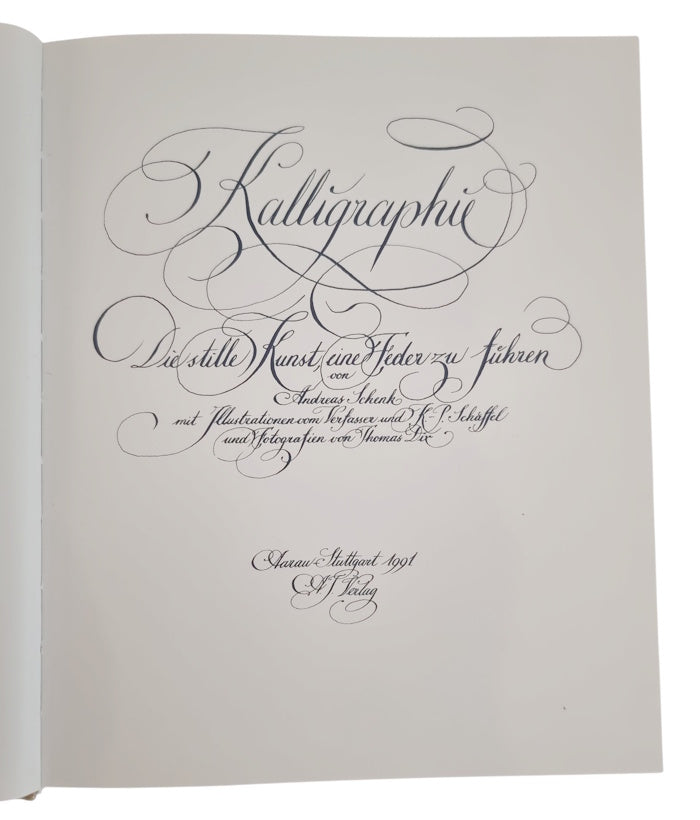 Kalligraphie
Die stille Kunst, eine Feder zu führen
von
Andreas Schenk
mit Illustrationen vom Verfasser und K.-P. Schäffel
und Fotografien von Thomas Dix
Aarau Stuttgart 1991
AT Verlag